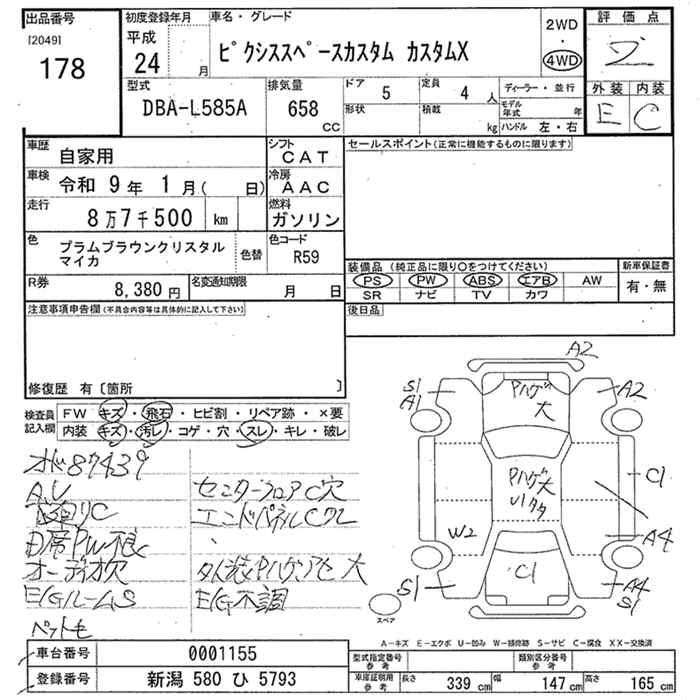 出品番号
[2049]
178
初度登録年月
平成
24 月
車名・グレード
ピクシススペースカスタム カスタムX
2WD
・
4WD
評価点
外装 内装
E C
型式
DBA-L585A
排気量
658
CC
ドア
5
定員
4 人
形状
積載
kg
ディーラー・並行
モデル年式 年
ハンドル 左・右
車歴
自家用
シフト
CAT
車検
令和 9年 1月( 日)
冷房
AAC
走行
8万7千500 km
燃料
ガソリン
色
プラムブラウンクリスタル
マイカ
色替
色コード
R59
R券
8,380円
名変通知期限
月 日
セールスポイント(正常に機能するものに限ります)
装備品 (純正品に限り○をつけてください)
PS PW ABS エアB AW
SR ナビ TV カワ
新車保証書
有・無
後日品
注意事項申告欄(不具合内容等は具体的に記入して下さい)
修復歴 有〔箇所 〕
検査員
記入欄
FW キズ・飛石・ヒビ割・リペア跡・×要
内装 キズ・汚レ・コゲ・穴・スレ・キレ・破レ
オド87439
A,U
下回リC
D席PW不良
オーディオ欠
E/GルームS
ペット毛
センターフロアC穴
エンドパネルCクレ
タイヤ
E/G不調
A2
S1
A1
Pハゲ大
A2
Pハゲ大
C1
W2
A4
S1
C1
A4
S1
スペア
A-キズ E-エクボ U-凹み W-補修跡 S-サビ C-腐食 XX-交換済
車台番号
0001155
登録番号
新潟 580 ひ 5793
型式指定番号
参考
類別区分番号
参考
車庫証明用
参考
長さ 339 cm
幅 147 cm
高さ 165 cm